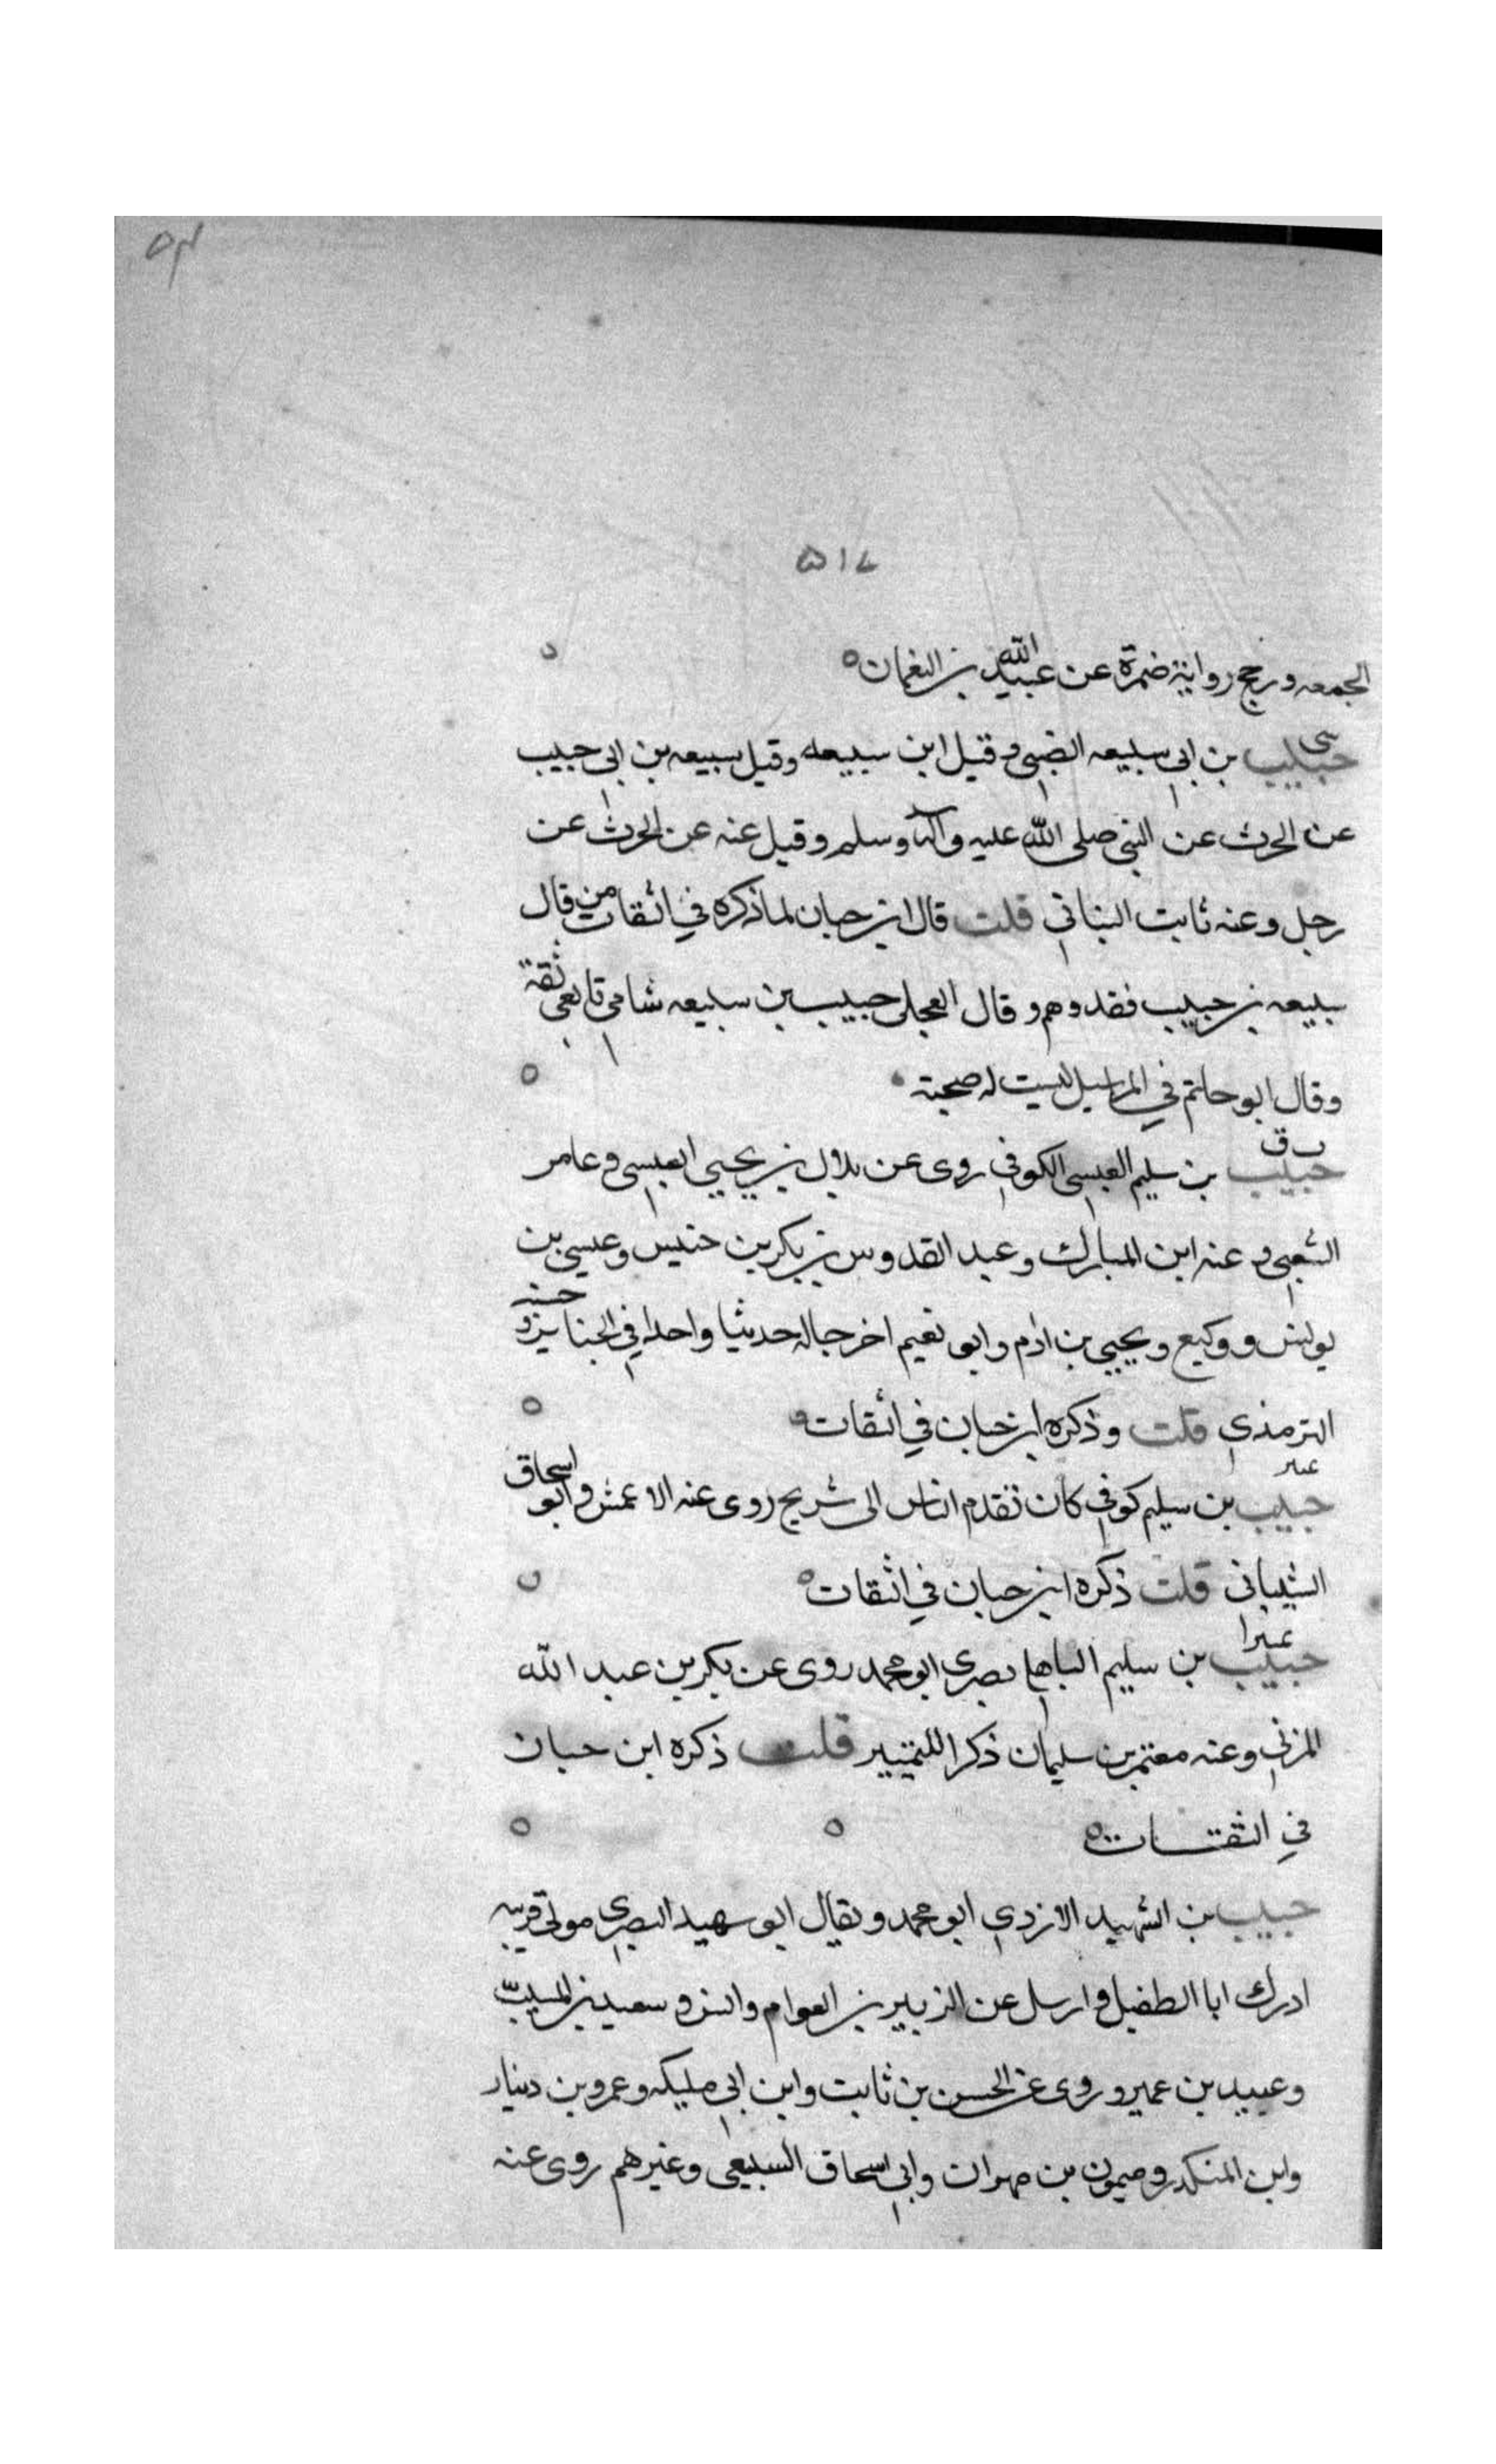 ۵۱۷
الجمعه ورجح رواية ضمرة عن عبيد الله بن النعمان
سي
حبيب بن ابي سبيعه الضبي وقيل ابن سبيعه وقيل سبيعه بن ابي حبيب
عن الحرث عن النبي صلى الله عليه وآله وسلم وقيل عنه عن الحرث عن
رجل وعنه ثابت البناني قلت قال ابن حبان لما ذكره في الثقات من قال
سبيعه بن حبيب فقد وهم وقال العجلي حبيب بن سبيعه شامي تابعي ثقة
وقال ابو حاتم في المراسيل ليست له صحبة
ت ق
حبيب بن سليم العبسي الكوفي روى عن بلال بن يحيى العبسي وعامر
الشعبي وعنه ابن المبارك وعبد القدوس بن بكر بن خنيس وعيسى بن
يونس ووكيع ويحيى بن ادم وابو نعيم اخرجا له حديثا واحدا في الجنايز وحسنه
الترمذي قلت وذكره ابن حبان في الثقات
حبيب بن سليم كوفي كان تقدم الناس الى شريح روى عنه الاعمش وابو اسحاق
الشيباني قلت ذكره ابن حبان في الثقات
حبيب بن سليم الباهلي بصري ابو محمد روى عن بكر بن عبد الله
المزني وعنه معتمر بن سليمان ذكرا للتمييز قلت ذكره ابن حبان
في الثقات
حبيب بن الشهيد الازدي ابو محمد ويقال ابو شهيد البصري مولى قريبه
ادرك ابا الطفيل وارسل عن الزبير بن العوام وانس وسعيد بن المسيب
وعبيد بن عمير وروى عن الحسن بن ثابت وابن ابي مليكه وعمرو بن دينار
وابن المنكدر وميمون بن مهران وابي اسحاق السبيعي وغيرهم روى عنه